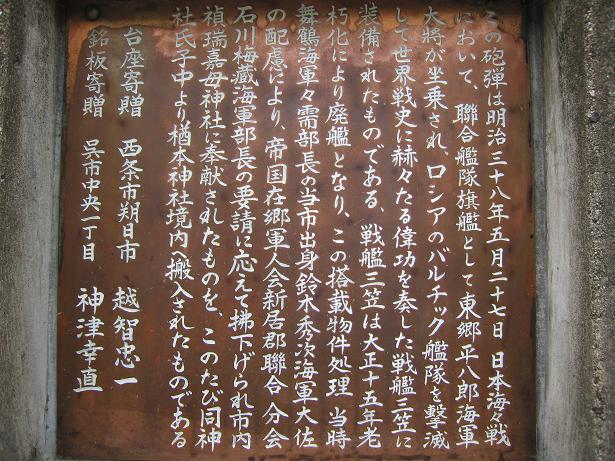 この砲弾は明治三十八年五月二十七日 日本海々戦
において、聯合艦隊旗艦として東郷平八郎海軍
大将が坐乗され、ロシアのバルチック艦隊を撃滅
して世界戦史に赫々たる偉功を奏した戦艦三笠に
装備されたものである、戦艦三笠は大正十五年老
朽化により廃艦となり、この搭載物件処理 当時
舞鶴海軍々需部長の当市出身鈴木秀次海軍大佐
の配慮により、帝国在郷軍人会新居郡聯合分会
石川梅蔵海軍部長の要請に応えて拂下げられ市内
禎瑞嘉母神社に奉献されたものを、このたび同神
社氏子中より楢本神社境内へ搬入されたものである
台座寄贈 西条市朔日市 越智忠一
銘板寄贈 呉市中央一丁目 神津幸直